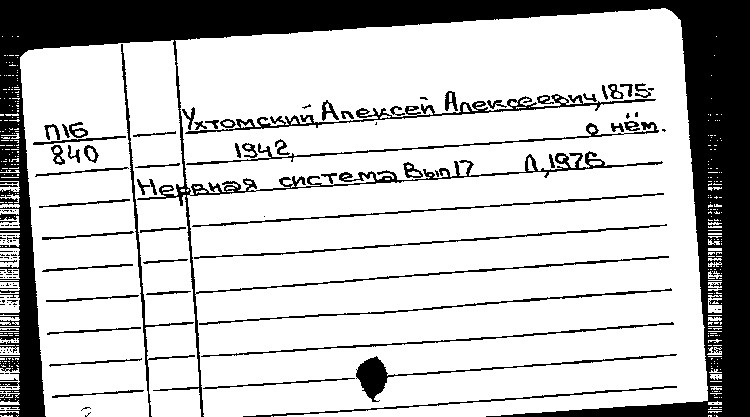 П16 Ухтомский, Алексей Алексеевич, 1875-
840 1942, о нём.
Нервная система Вып 17 Л, 1976